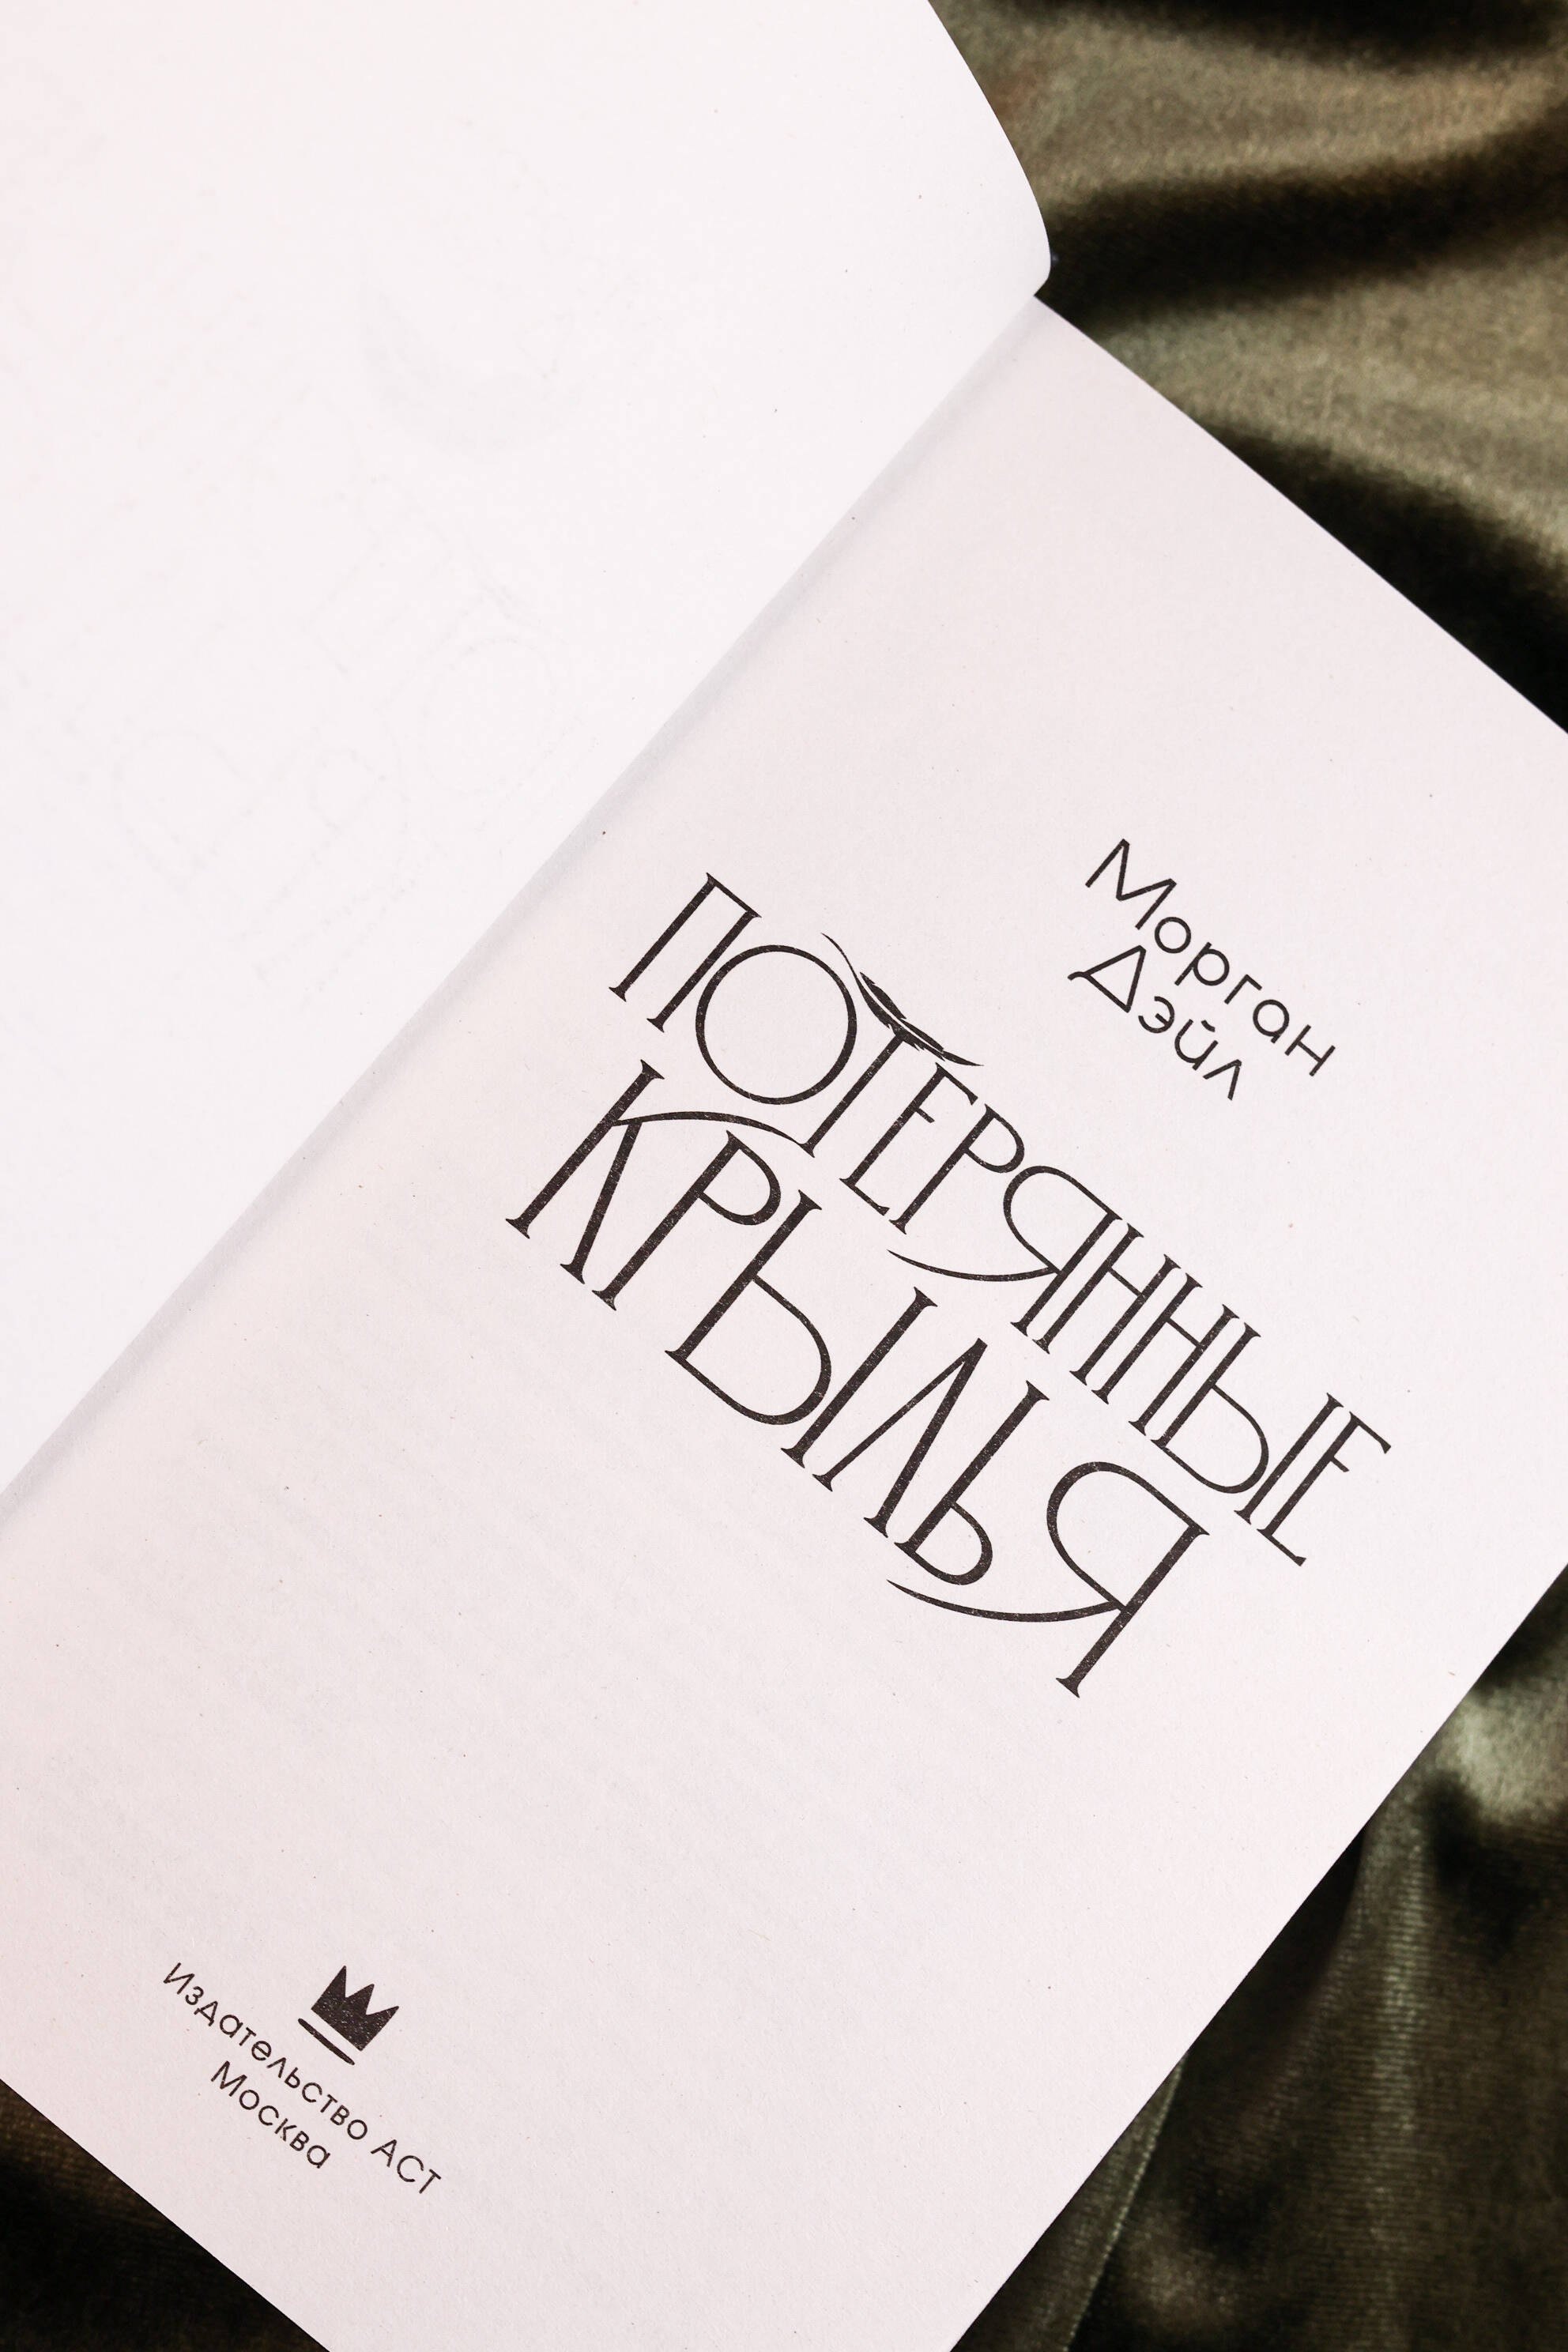 Морган
Дэйл
ПОТЕРЯННЫЕ
КРЫЛЬЯ
Издательство АСТ
Москва